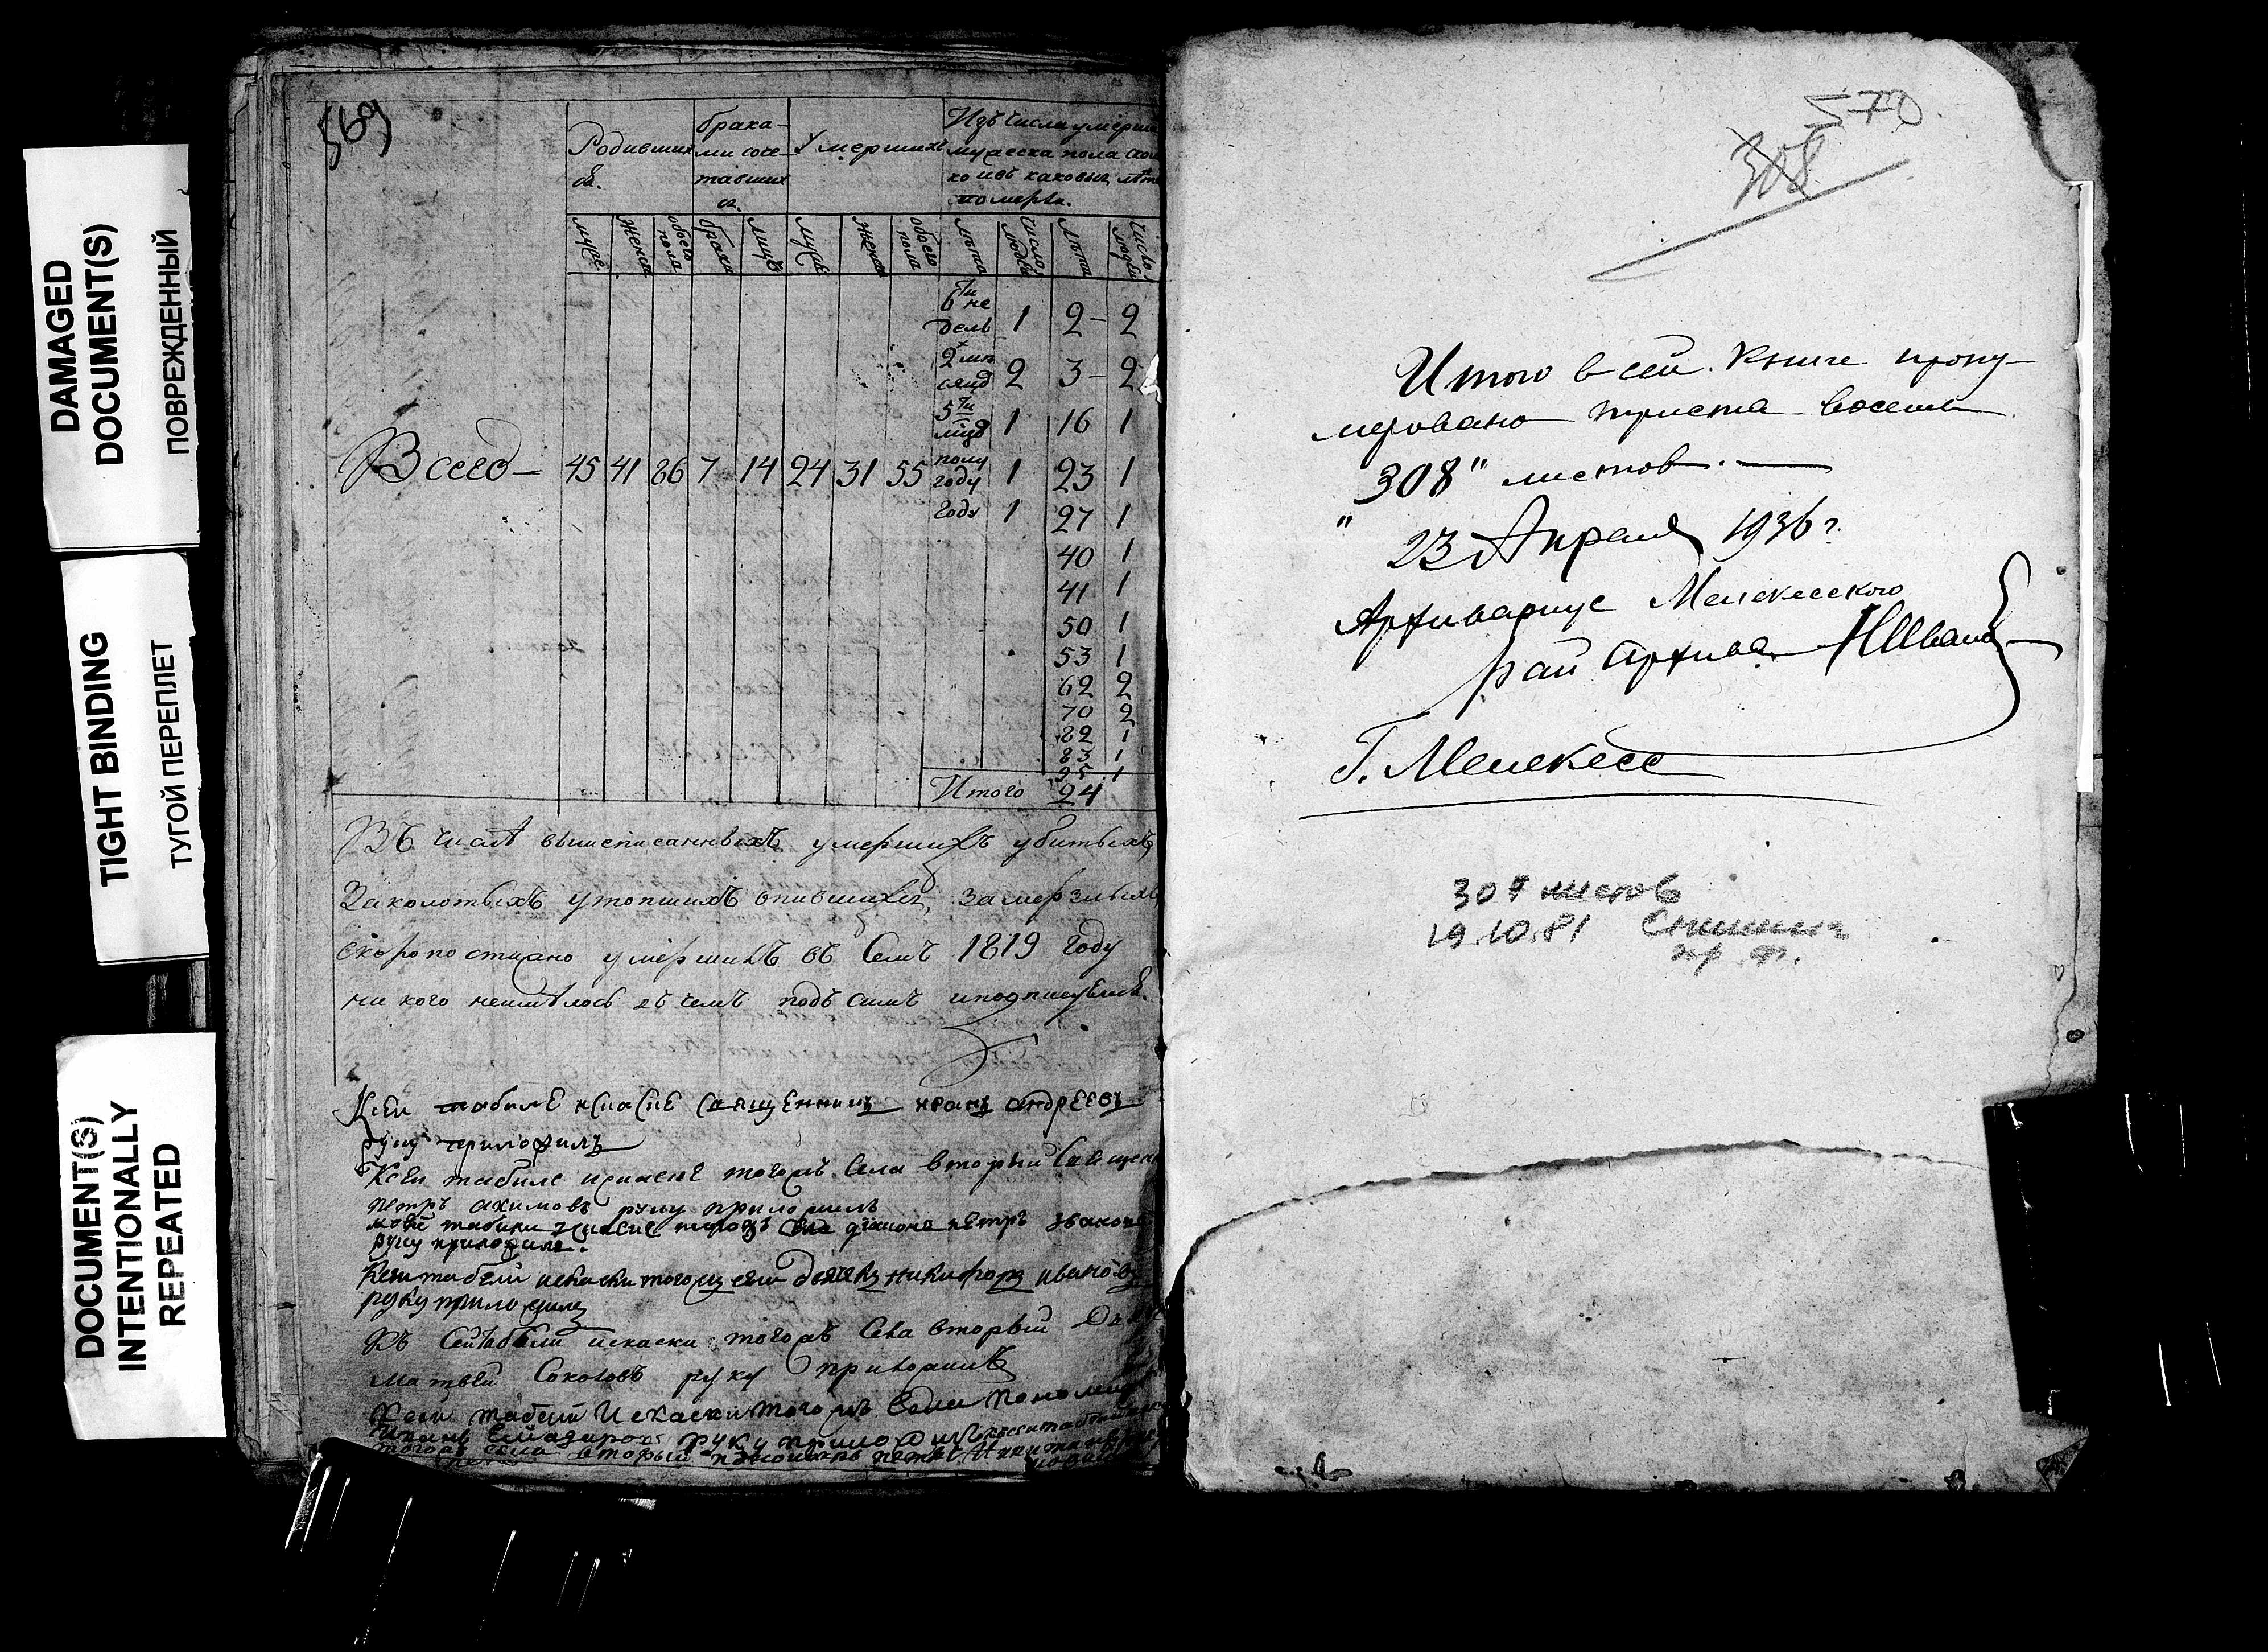 DAMAGED
DOCUMENT(S)
ПОВРЕЖДЕННЫЙ
TIGHT BINDING
ТУГОЙ ПЕРЕПЛЕТ
DOCUMENT(S)
INTENTIONALLY
REPEATED
569
Родивших
ся.
брака-
ми соче-
тавших
ся.
Умершихъ
Изъ числа умерши
мужеска пола скол
ко изъ каковых лѣт
померло.
муже женск обоего пола браки лицъ муже женск обоего пола лѣта число людей лѣта число людей
6ти не
дель 1 2 - 2
2х мѣ
сяцъ 2 3 - 2
5ти
мѣцъ 1 16 1
Всего - 45 41 86 7 14 24 31 55 полу
году 1 23 1
году 1 27 1
40 1
41 1
50 1
53 1
62 2
70 2
82 1
83 1
95 1
Итого 24
Въ числѣ вышеписанныхъ умершихъ убитыхъ,
Заколотыхъ утопшихъ опившихся, замерзлыхъ
скоропостижно умершихъ въ Семъ 1819 году
ни кого неимѣлось въ чемъ подъ симъ и подписуемся.
священникъ иванъ андреевъ
руку приложилъ
Ксей табиле тогожъ Села вторый Священ
петръ акимовъ руку приложилъ
тогожъ Села диаконъ петръ
руку приложилъ.
тогожъ села дьячекъ никифоръ ивановъ
руку приложилъ
Къ Сей табели искаски тогожъ Села вторый
матвей Соколовъ руку приложилъ
Ксей табели искаски тогожъ Села пономарь
руку приложилъ
тогожъ села вторый пономарь петръ
570
308
Итого в сей книге прону-
меровано триста восемь
"308" листов. —
" 23 Апреля 1936 г.
Архивариус Мелекесского
рай архива
Г. Мелекесс
307 листов
19.10.81